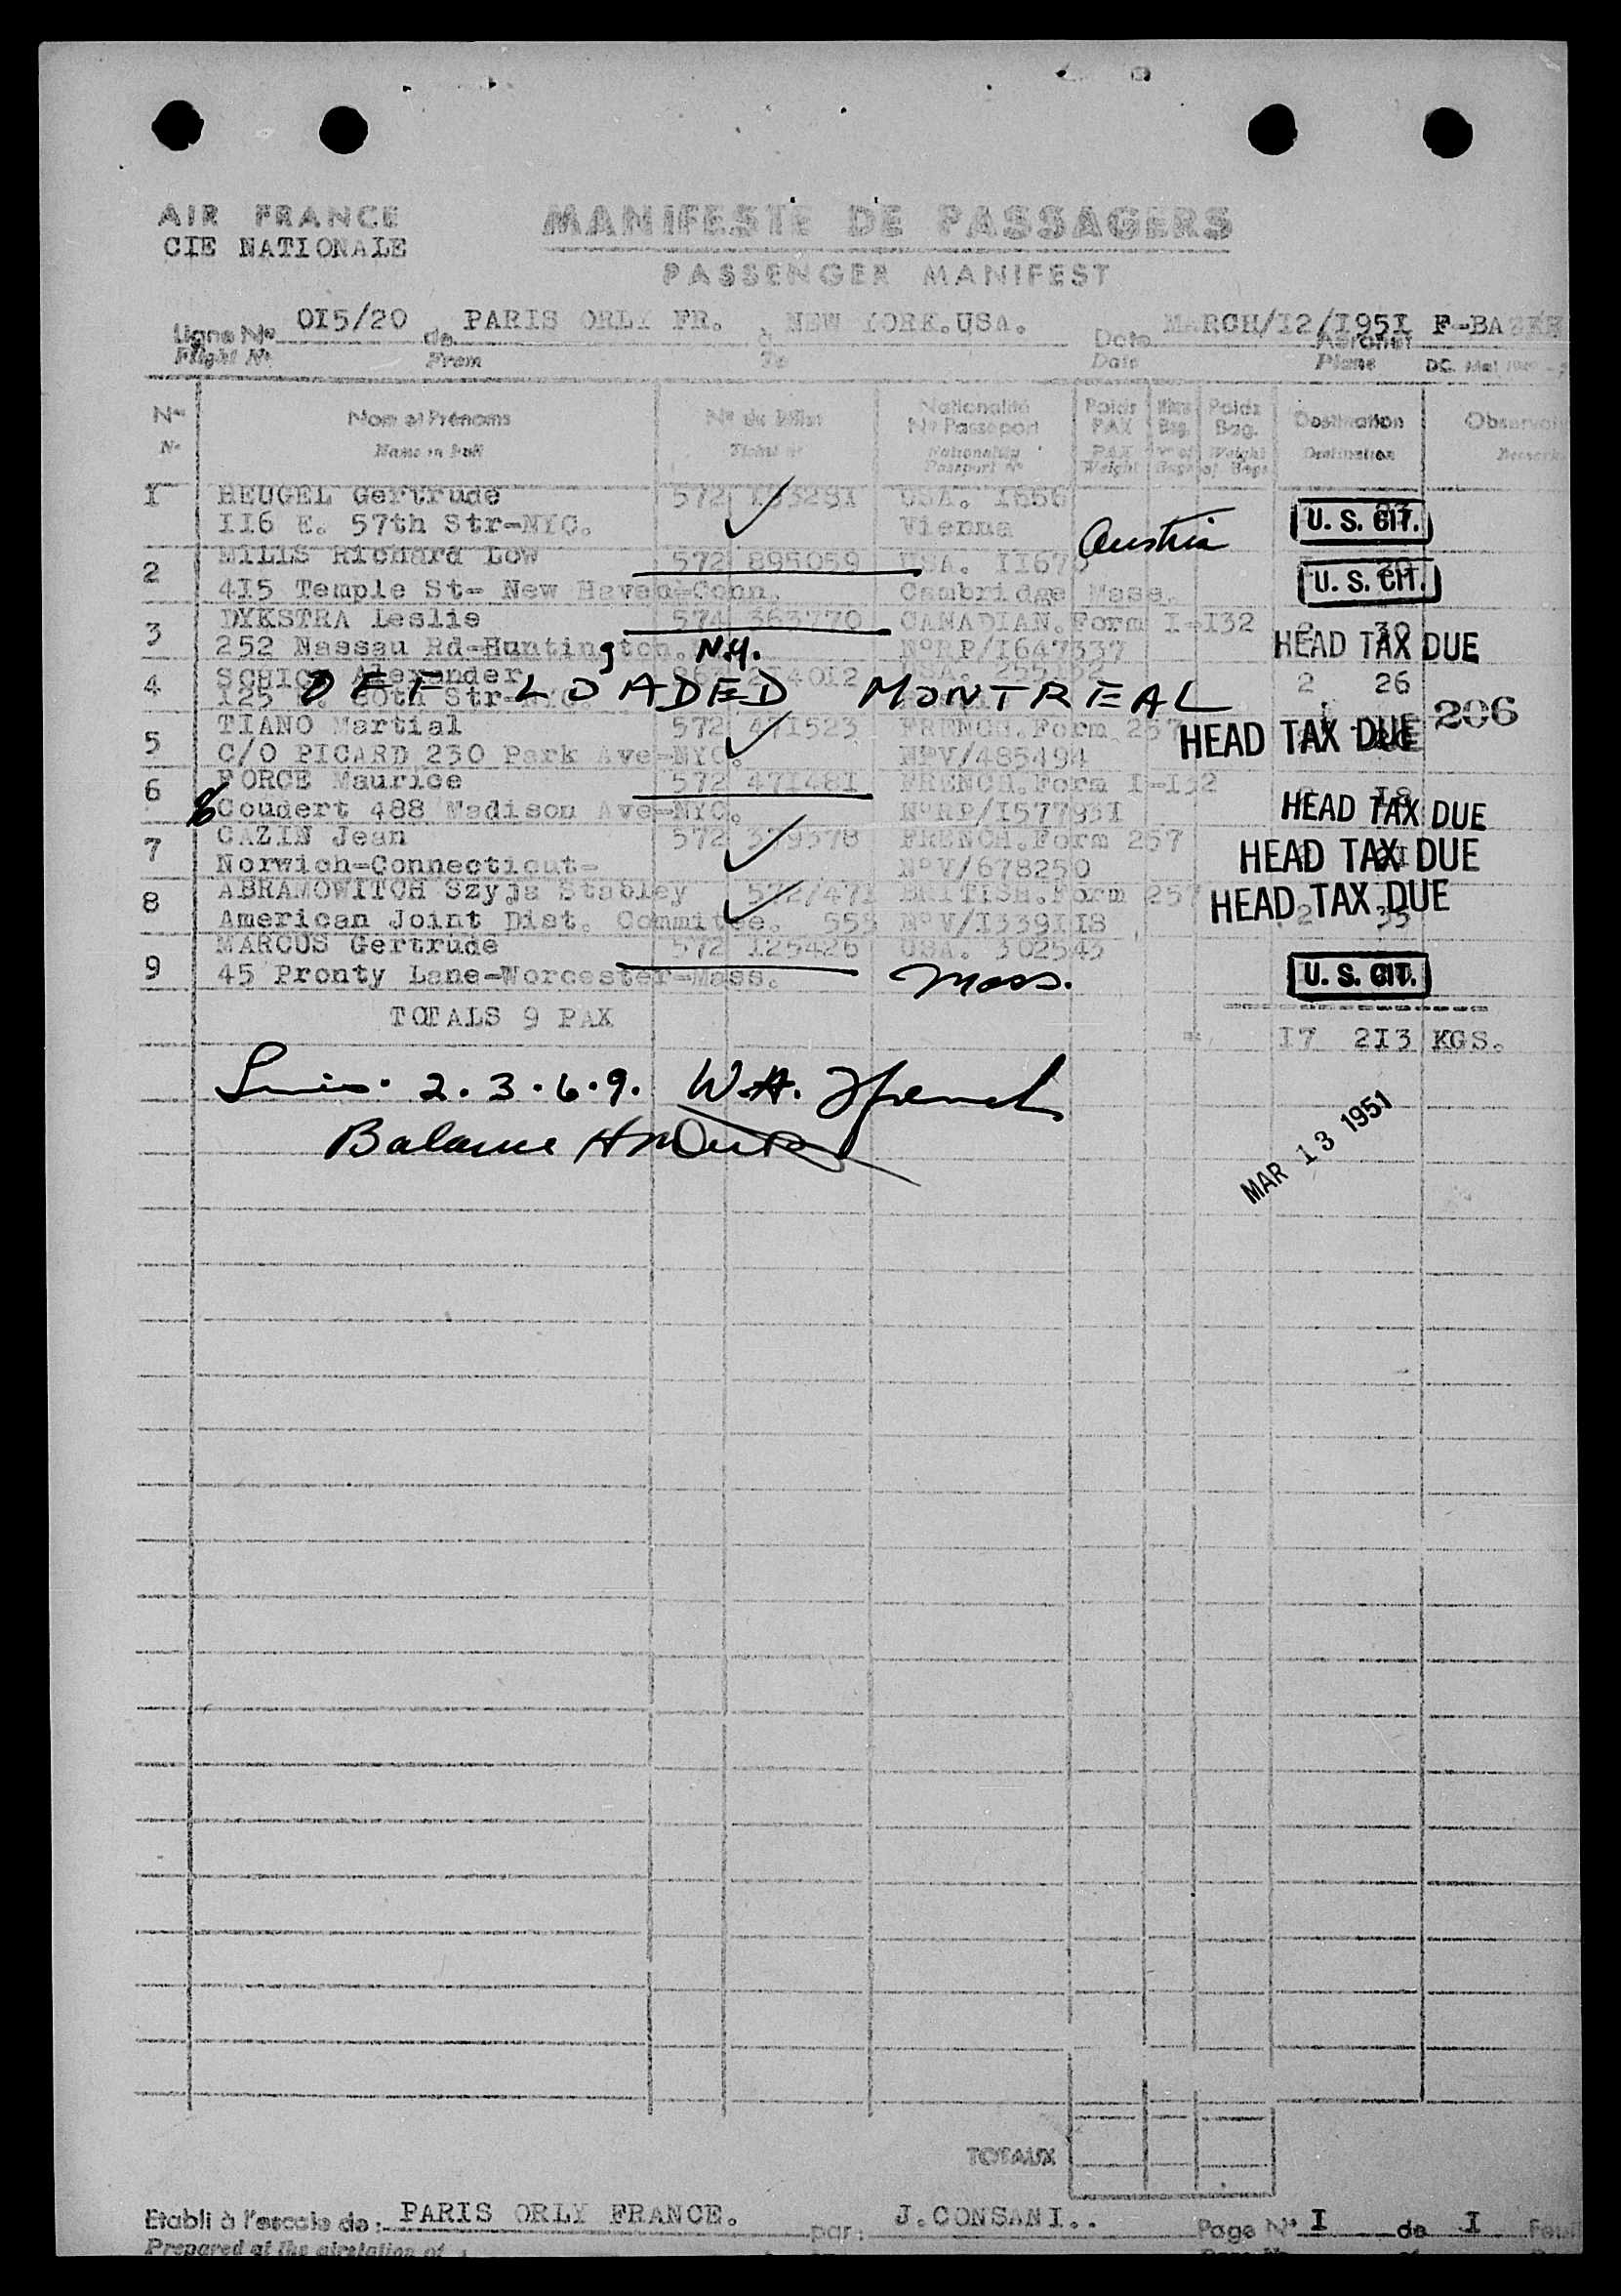 AIR FRANCE
CIE NATIONALE
MANIFESTE DE PASSAGERS
PASSENGER MANIFEST
Ligne No OI5/20 de PARIS ORLY FR. à NEW YORK.USA. Date MARCH/I2/I95I Aéronef F-BA
Flight No From To Date Plane
Nos Nom et Prénoms No du Billet Nationalité No Passeport Poids PAX Nbre Bag. Poids Bag. Destination
No Name in Full Ticket no Nationality Passport no PAX Weight No of Bags Weight of Bags Destination
I HEUGEL Gertrude 572 USA. I666
II6 E. 57th Str-NYC. Vienna Austria U. S. CIT.
2 MILLS Richard Low 572 895059 USA. II67
4I5 Temple St- New Haven-Conn. Cambridge Mass. U. S. CIT.
3 DYKSTRA Leslie 574 363770 CANADIAN.Form I-I32 2 30
252 Nassau Rd-Huntington. N.Y. NoRP/I647337 HEAD TAX DUE
4 Alexander 4012 USA. 2 26
I25 Str-NYC.
OFF LOADED MONTREAL
5 TIANO Martial 572 47I523 FRENCH.Form 257 206
C/O PICARD 230 Park Ave-NYC. NoV/485494 HEAD TAX DUE
6 FORCE Maurice 572 47I48I FRENCH.Form I-I32 I8
% Coudert 488 Madison Ave-NYC. NoRP/I57793I HEAD TAX DUE
7 CAZIN Jean 572 379378 FRENCH.Form 257
Norwich-Connecticut- NoV/678250 HEAD TAX DUE
8 ABRAMOWITCH Szyja Stabley 572/47I BRITISH.Form 257 HEAD TAX DUE
American Joint Dist. Commitee. 555 NoV/I339II8 2 35
9 MARCUS Gertrude 572 I25426 USA. 302543
45 Pronty Lane-Worcester-Mass. Mass. U. S. CIT.
TOTALS 9 PAX
I7 2I3 KGS.
2. 3. 6. 9. W.A. French
Balance
MAR 13 1951
TOTAUX
Etabli à l'escale de: PARIS ORLY FRANCE. par: J.CONSANI.. Page No I de I
Prepared at the airstation of